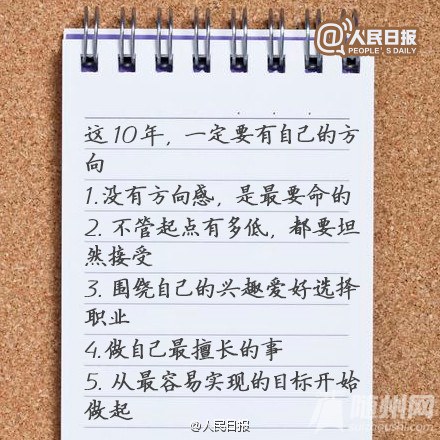 @人民日报
PEOPLE'S DAILY
这10年，一定要有自己的方
向
1.没有方向感，是最要命的
2. 不管起点有多低，都要坦
然接受
3. 围绕自己的兴趣爱好选择
职业
4.做自己最擅长的事
5. 从最容易实现的目标开始
做起
随州网
@人民日报